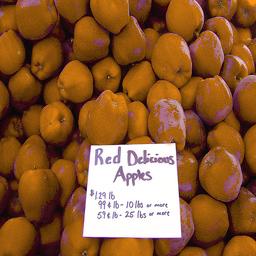 Red Delicious
Apples
$1.29 lb
99¢ lb - 10 lbs or more
59¢ lb - 25 lbs or more